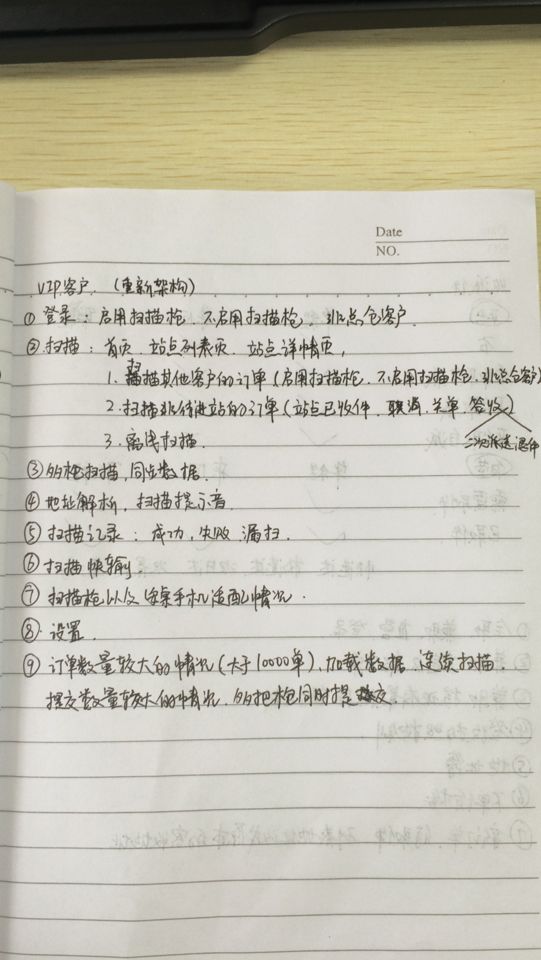 Date
NO.
VIP客户 (重新架构)
① 登录: 启用扫描枪、不启用扫描枪、非点仓客户
② 扫描: 首页、站点列表页、站点详情页,
1. 扫描其他客户的订单 (启用扫描枪、不启用扫描枪、非点仓客户)
2. 扫描非待进站的订单 (站点已收件、取消、关单、签收)
二次派送 退件
3. 离线扫描
③ 多枪扫描, 同步数据.
④ 地址解析, 扫描提示音
⑤ 扫描记录: 成功, 失败 漏扫.
⑥ 扫描快输
⑦ 扫描枪以及安桌手机适配情况.
⑧ 设置
⑨ 订单数量较大的情况 (大于10000单). 加载数据. 连续扫描.
提交数量较大的情况, 多把枪同时提交